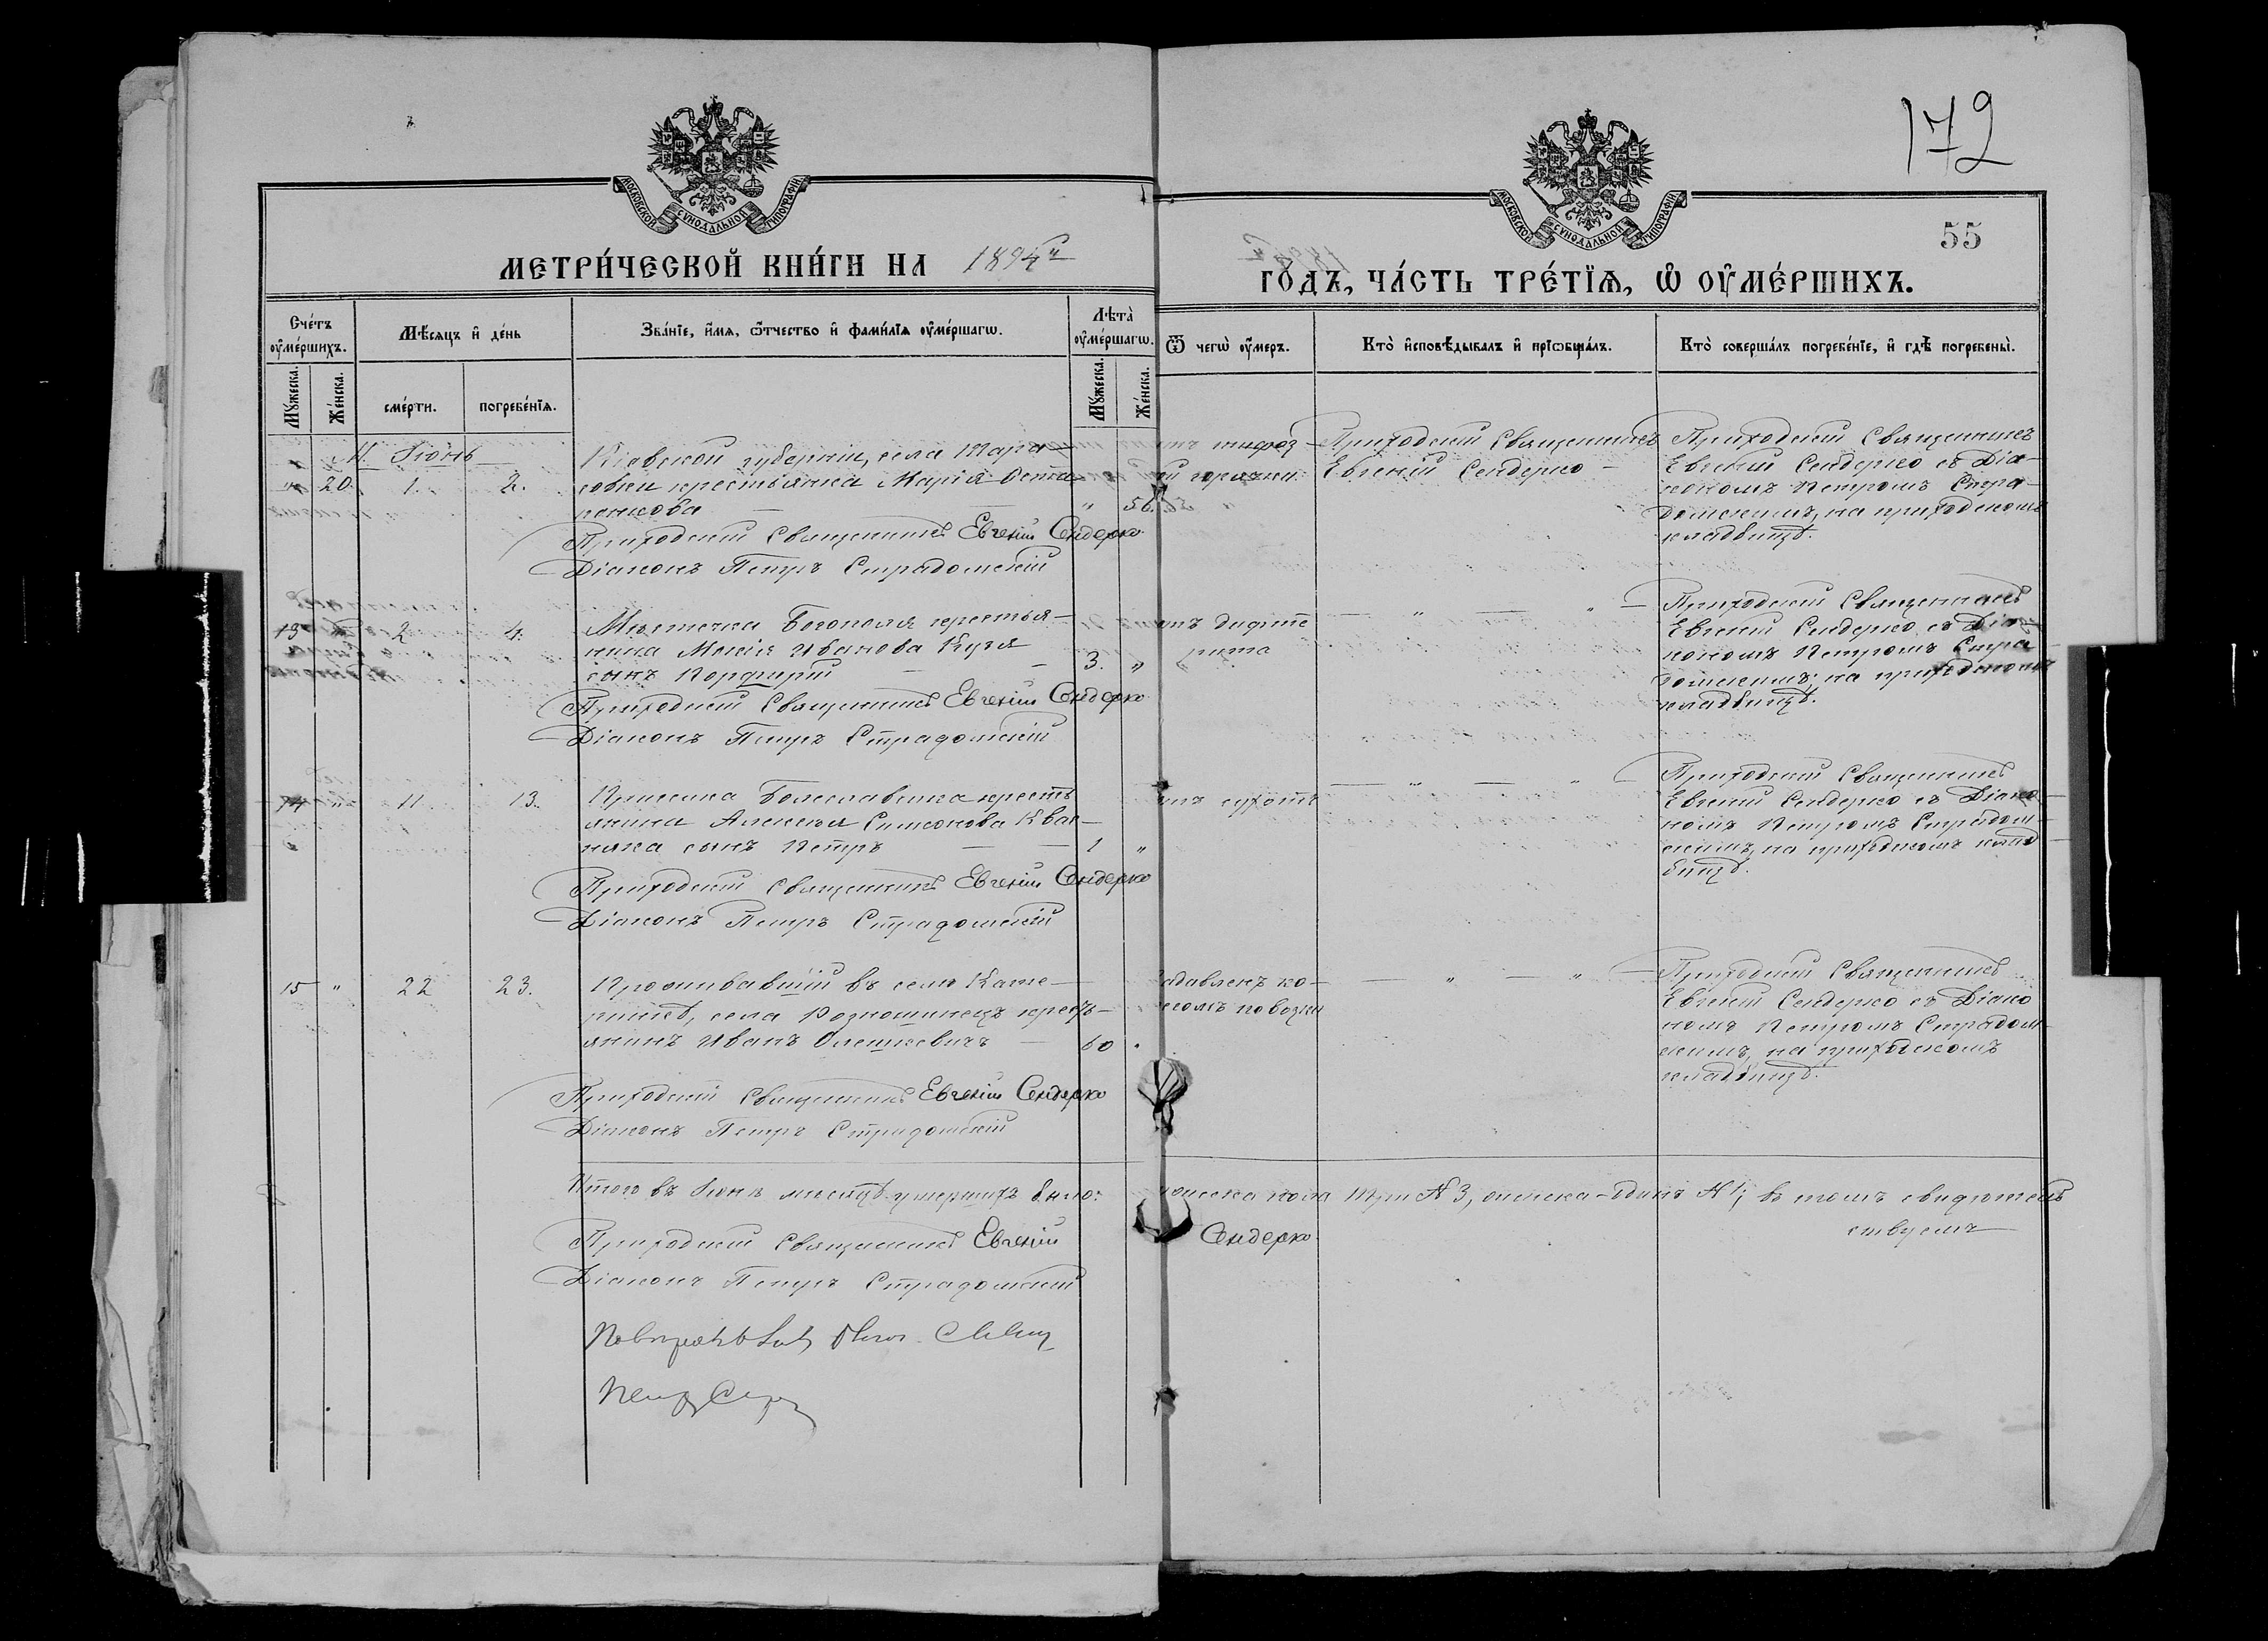 172
55
МОСКОВСКОЙ СѴНОДАЛЬНОЙ ТИПОГРАФІИ
МОСКОВСКОЙ СѴНОДАЛЬНОЙ ТИПОГРАФІИ
МЕТРИ́ЧЕСКОЙ КНИ́ГИ НА 1894й
ГО́ДЪ, ЧА́СТЬ ТРЕ́ТЇѦ, Ѡ҆ ОУ҆МЕ́РШИХЪ.
Сче́тъ оу҆ме́ршихъ.
Мꙋ́жеска.
Же́нска.
Мѣ́сѧцъ и҆ де́нь
сме́рти.
погребе́нїѧ.
Зва́нїе, и҆́мѧ, ѻ҆́тчество и҆ фами́лїѧ оу҆ме́ршагѡ.
Лѣта̀ оу҆ме́ршагѡ.
Мꙋ́жеска.
Же́нска.
Ѿ чегѡ̀ оу҆́меръ.
Кто̀ и҆сповѣ́дывалъ и҆ прїѡбща́лъ.
Кто̀ соверша́лъ погребе́нїе, и҆ гдѣ̀ погребены̀.
М. Іюнь
" 20. 1. 2.
Кіевской губерніи, села Тара-
совки крестьянка Марія Оста-
пенкова — — " 56.
Приходскій Священникъ Евгеній Сендерко
Діаконъ Петръ Страдомскій
тифоз-
й горячки
Приходскій Священникъ
Евгеній Сендерко —
Приходскій Священникъ
Евгеній Сендерко съ Діа-
кономъ Петромъ Стра-
домскимъ, на приходскомъ
кладбищѣ.
13 " 2 4.
Мѣстечка Богополя крестья-
нина Моисія Иванова Кузя
сынъ Порфирій — 3. "
Приходскій Священникъ Евгеній Сендерко
Діаконъ Петръ Страдомскій
дифте
рита
— " — " —
Приходскій Священникъ
Евгеній Сендерко съ Діа-
кономъ Петромъ Стра-
домскимъ, на приходскомъ
кладбищѣ.
14 " 11 13.
Болеславчика кресть
янина Алексѣя Симонова Квас-
няка сынъ Петръ — — 1 "
Приходскій Священникъ Евгеній Сендерко
Діаконъ Петръ Страдомскій
сухотъ
— " — " —
Приходскій Священникъ
Евгеній Сендерко съ Діако-
номъ Петромъ Страдом-
скимъ, на приходскомъ клад-
бищѣ.
15 " 22 23.
Проживавшій въ селѣ Кате-
ринкѣ, села Розношинецъ кресть-
янинъ Иванъ Олешкевичъ — 60 "
Приходскій Священникъ Евгеній Сендерко
Діаконъ Петръ Страдомскій
здавленъ ко-
лесомъ повозки
— " — " —
Приходскій Священникъ
Евгеній Сендерко съ Діако
номъ Петромъ Страдом-
скимъ, на приходскомъ
кладбищѣ.
Итого въ Іюнѣ мѣсяцѣ умершихъ было: мужеска пола три № 3, женска - одинъ № 1; въ томъ свидѣтель
ствуемъ
Приходскій Священникъ Евгеній Сендерко
Діаконъ Петръ Страдомскій